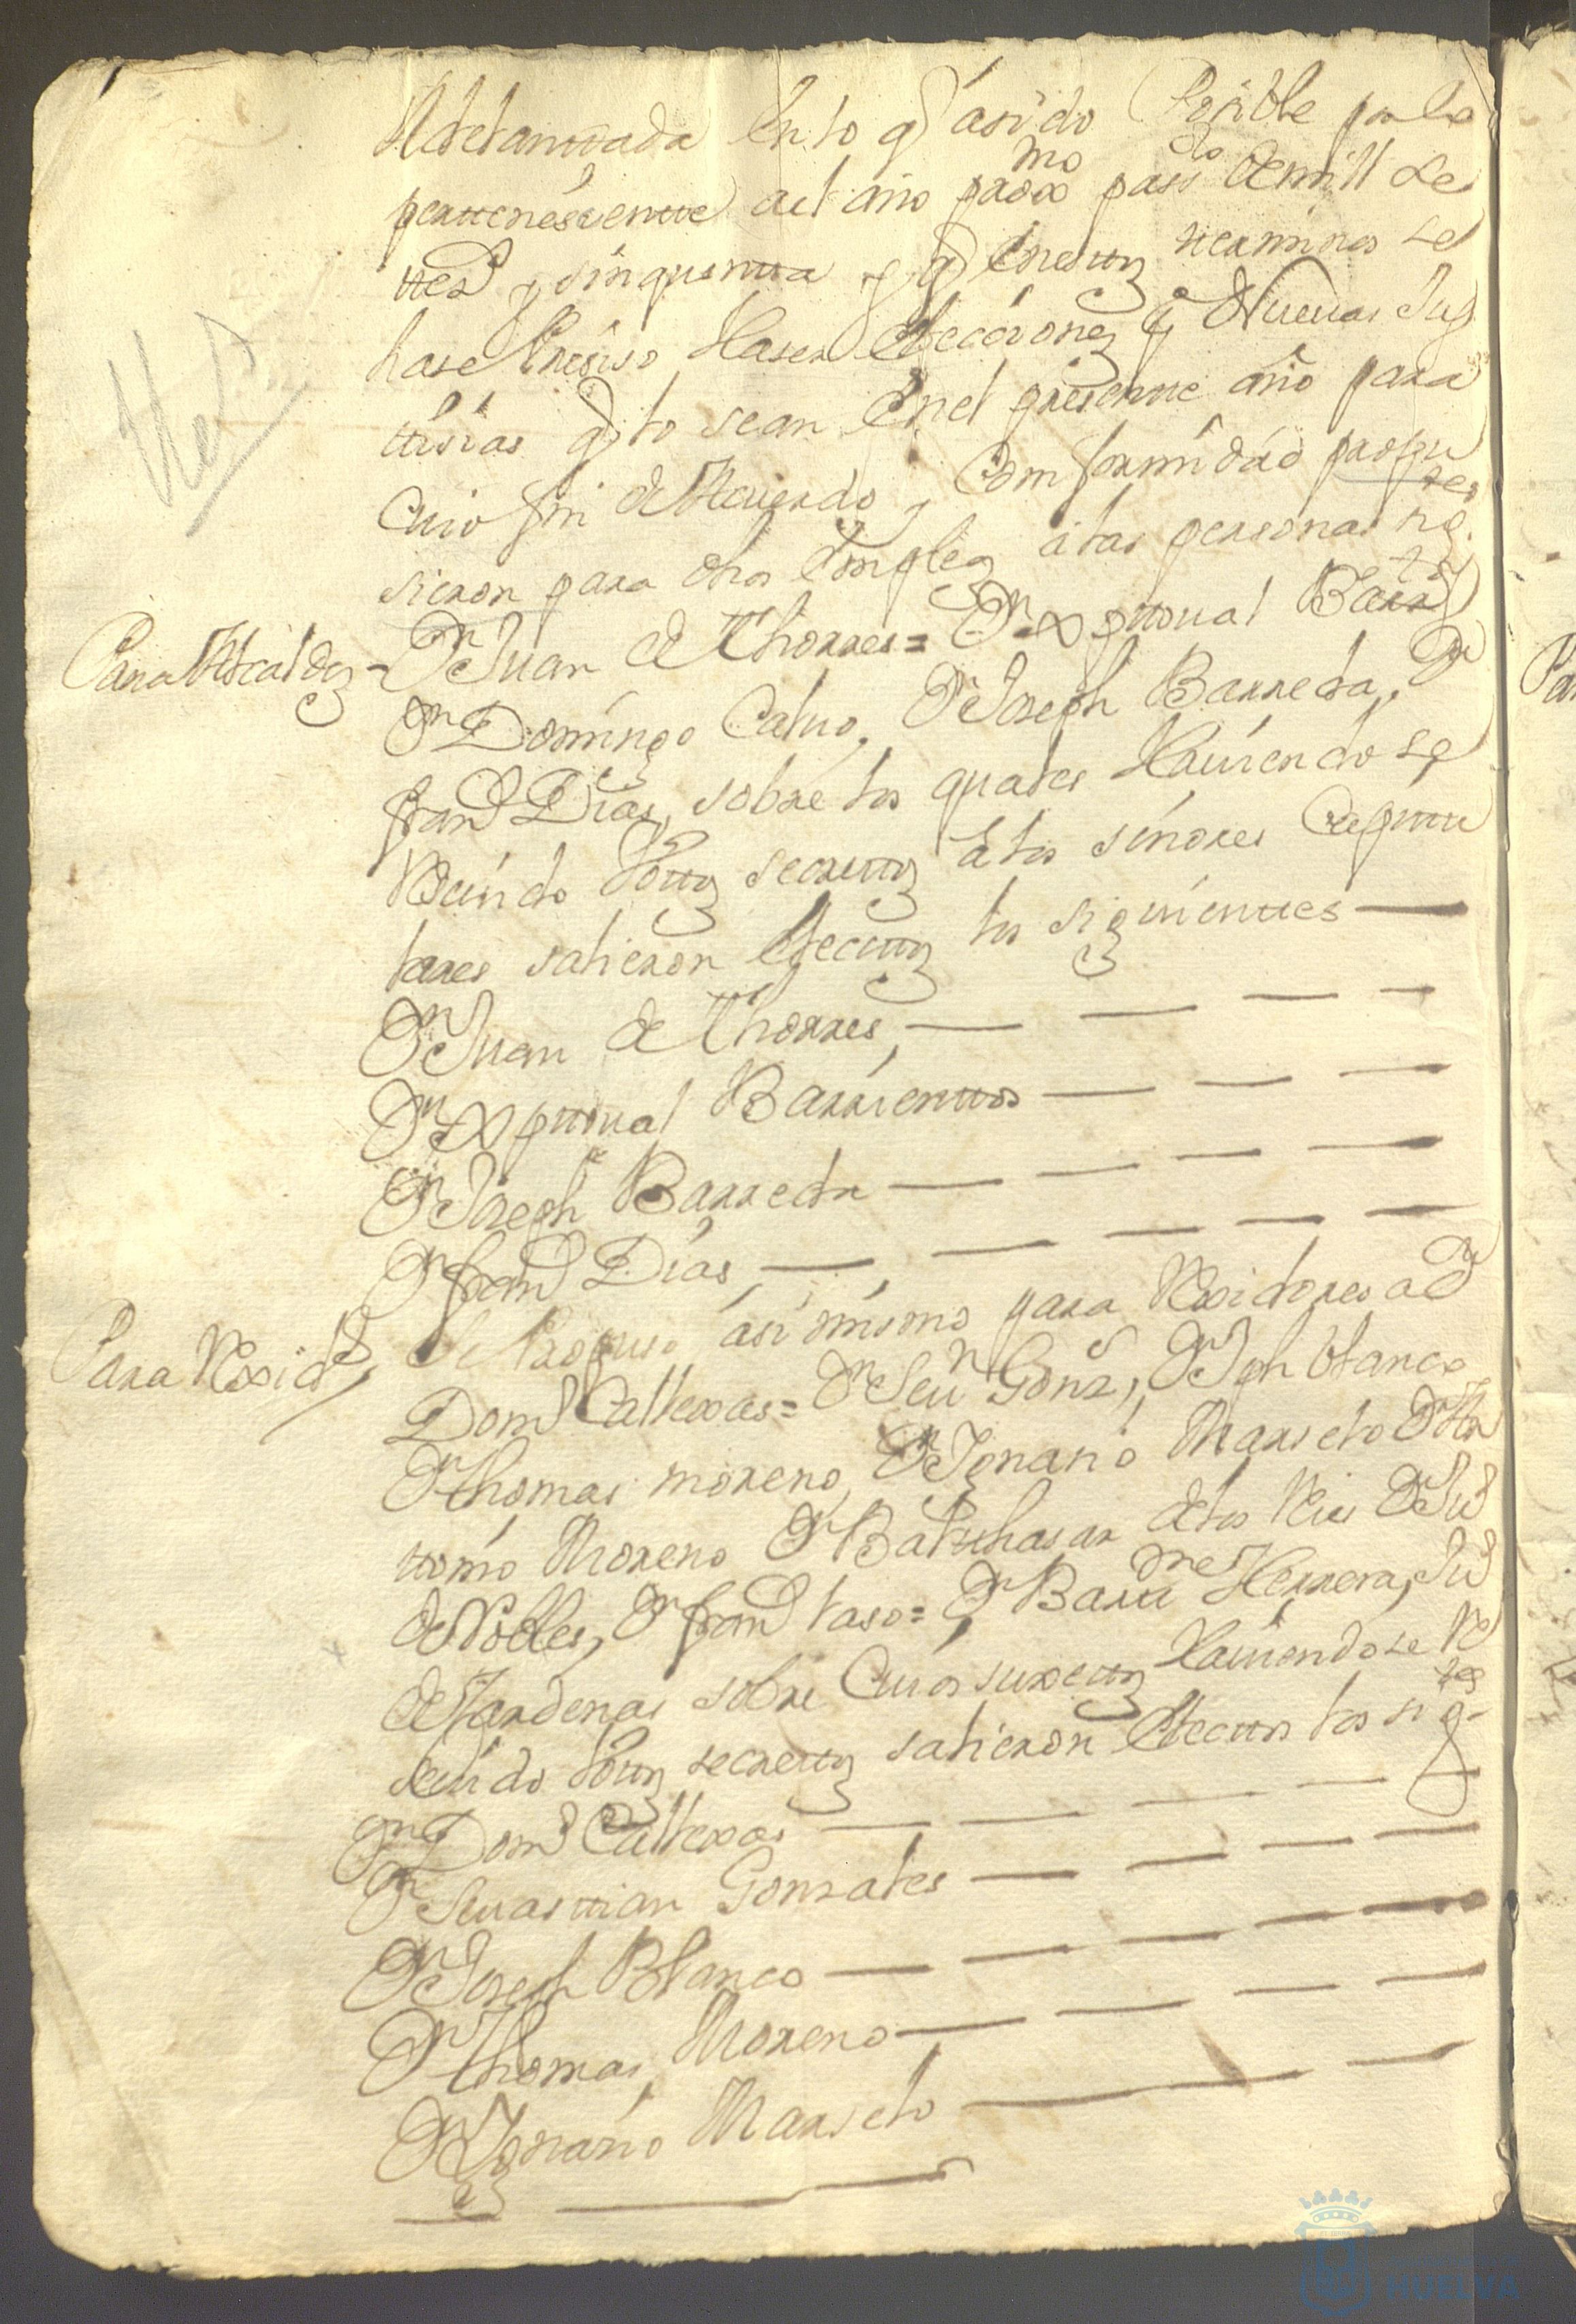 Adelantada en lo q asido Posible por lo
perttenesiente al año proxmo passdo de mill Se
ttesd y sinquentta y q en esttos terminos se
hase Presiso Haser Elecciones de Nuevas Jus
ttisias q lo sean en el presente año para
Cuio fin de Acuerdo y Comformidad propu
sieron para dhos Empleos a las personas sigtes
Para Alcaldes - Dn Juan de Thorres = Dn Xpttoual Barrtos
Dn Domingo Caluo, Dn Joseph Barreda, Dn
Frand Dias, sobre los quales Hauiendo se
Reciuido Vottos secrettos de los señores Capittu
lares salieron Electtos los siguienttes
Dn Juan de Thorres,
Dn Xpttoual Barrienttos
Dn Joseph Barreda
Dn Frand Dias,
Para Rexids, Se Propuso asi mismo para Rexidores a Dn
Domo Callexas = Dn Seun Gonz, Dn Jph Blanco
Dn Thomas Moreno, Dn Ygnasio Marselo Dn An
ttonio Moreno Dn Balthasar de los Rios Dn Jud
de Robles, Dn Frand laso = Dn Barttme Herrera, Jud
de Cardenas sobre Cuios suxettos Hauiendose Re
seuido Vottos secrettos salieron Electtos los sigtes
Dn Domo Callexas
Dn Seuasttian Gonzales
Dn Joseph Blanco
Dn Thomas Moreno
Dn Ygnasio Marselo
HUELVA